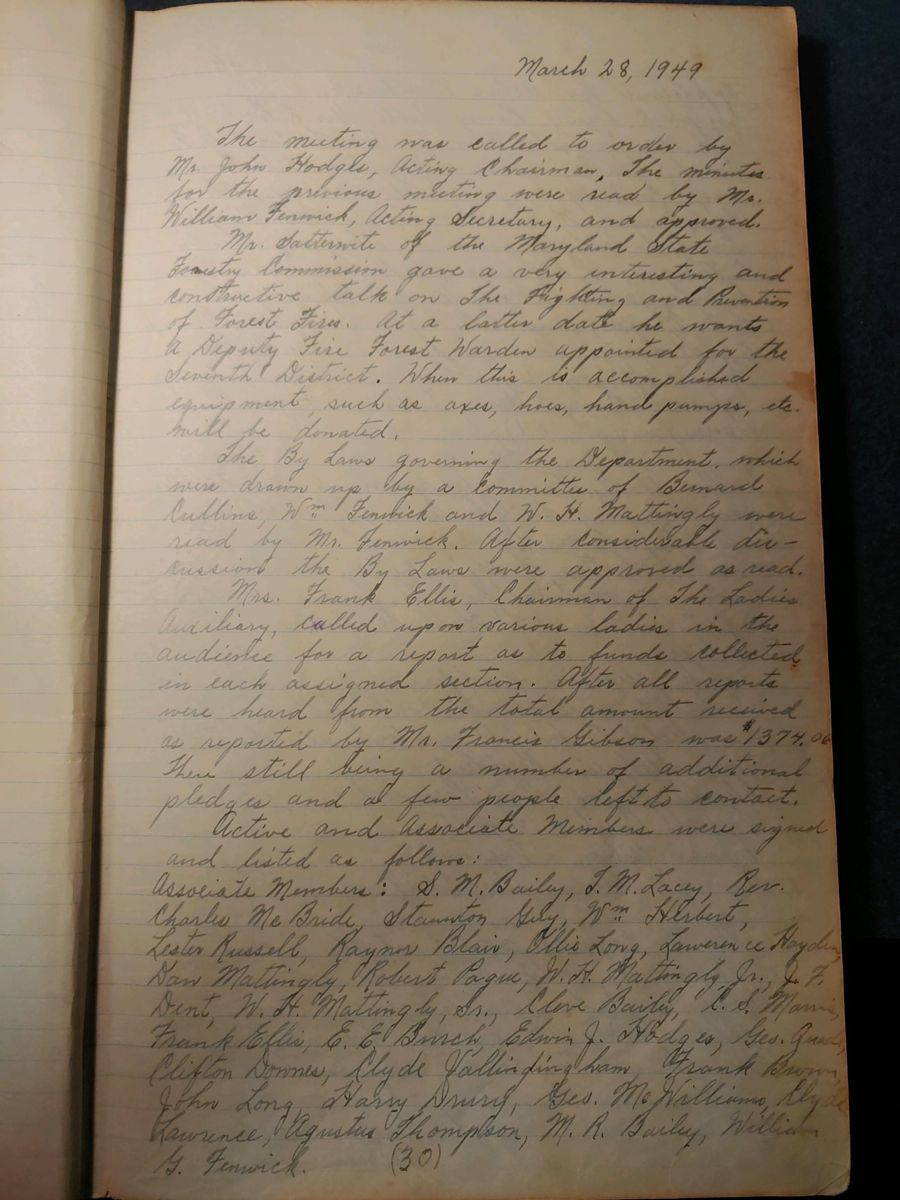 March 28, 1949
The meeting was called to order by
Mr. John Hodges, Acting Chairman, The minutes
for the previous meeting were read by Mr.
William Fenwick, Acting Secretary, and approved.
Mr. Satterwite of the Maryland State
Forestry Commission gave a very interesting and
constructive talk on The Fighting and Prevention
of Forest Fires. At a latter date he wants
a Deputy Fire Forest Warden appointed for the
Seventh District. When this is accomplished
equipment, such as axes, hoes, hand pumps, etc.
will be donated.
The By Laws governing the Department, which
were drawn up by a committee of Bernard
Cullins, Wm Fenwick and W. H. Mattingly were
read by Mr. Fenwick. After considerable dis-
cussion the By Laws were approved as read.
Mrs. Frank Ellis, Chairman of The Ladies
Auxiliary, called upon various ladies in the
audience for a report as to funds collected
in each assigned section. After all reports
were heard from the total amount received
as reported by Mr. Francis Gibson was $1374.00
There still being a number of additional
pledges and a few people left to contact.
Active and Associate Members were signed
and listed as follows:
Associate Members: S. M. Bailey, T. M. Lacey, Rev.
Charles McBride, Staunton Guy, Wm Herbert,
Lester Russell, Raynor Blair, Ollie Long, Lawerence Hayden,
Dan Mattingly, Robert Pogue, W. H. Mattingly, Jr., J. F.
Dent, W. H. Mattingly, Sr., Cleve Bailey, C. S. Morris,
Frank Ellis, E. E. Burch, Edwin J. Hodges, Geo. Quade,
Clifton Downes, Clyde Vallindingham, Frank Brown,
John Long, Harry Drury, Geo. McWilliams, Clyde
Lawrence, Agustus Thompson, M. R. Bailey, William
G. Fenwick. (30)